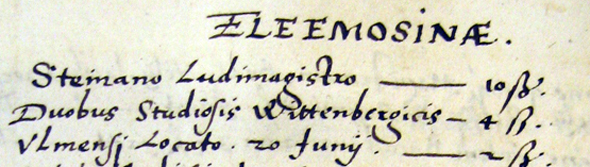 ELEEMOSINÆ.
Steinano Ludimagistro — 10 ß.
Duobus Studiosis Wittenbergicis — 4 ß.
Vlmensi Locato. 20 Junij. — 2 ß.